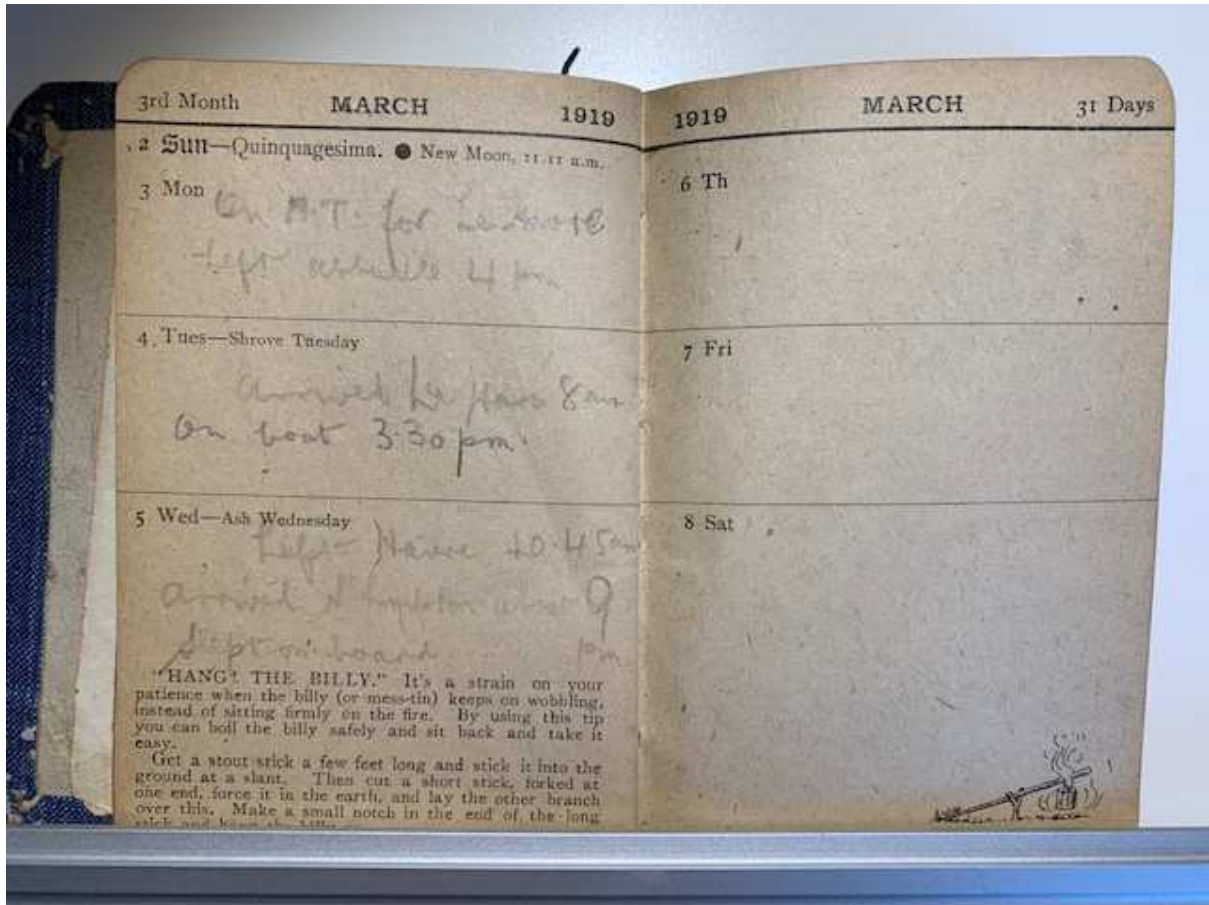 3rd Month MARCH 1919
2 Sun—Quinquagesima. ● New Moon, 11.11 a.m.
3 Mon
On A.T. for Le Havre
Left 4 pm
4 Tues—Shrove Tuesday
arrived Le Havre 8 am
On boat 3.30 pm.
5 Wed—Ash Wednesday
Left Havre 10.45 am
arrived S'hampton about 9
pm
slept on board
"HANG THE BILLY." It's a strain on your
patience when the billy (or mess-tin) keeps on wobbling,
instead of sitting firmly on the fire. By using this tip
you can boil the billy safely and sit back and take it
easy.
Get a stout stick a few feet long and stick it into the
ground at a slant. Then cut a short stick, forked at
one end, force it in the earth, and lay the other branch
over this. Make a small notch in the end of the long
1919 MARCH 31 Days
6 Th
7 Fri
8 Sat